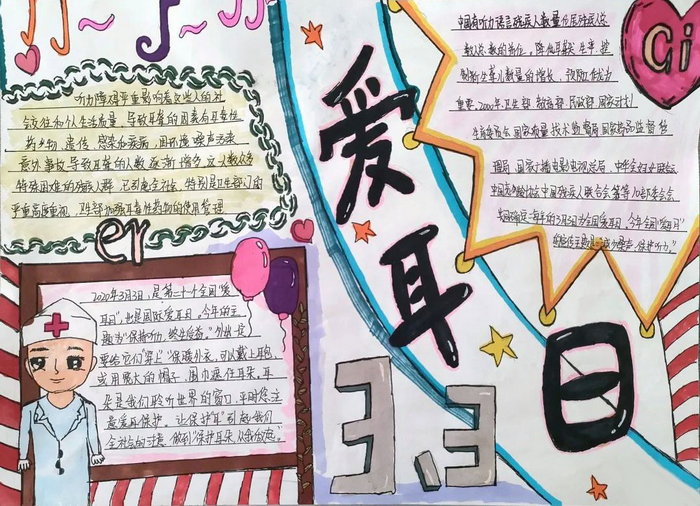 听力障碍严重影响着这些人的社
会交往和个人生活质量，导致耳聋的因素有耳毒性
药物，遗传，感染和疾病，因环境噪声污染
意外事故导致耳聋的人数逐渐增多，这人数众多
特殊困难的残疾人群，已引起全社会，特别是卫生部门的
严重高度重视，卫生部加强耳毒性药物的使用管理
er
2020年3月3日，是第二十个全国"爱
耳日"，也是国际爱耳日。今年的主
题为"保护听力，终生受益。"外出一定
要给它们"穿上""保暖外衣，可以戴上耳包
或用宽大的帽子，围巾遮住耳朵，耳
朵是我们聆听世界的窗口，平时您注
意爱耳保护。让保护"耳"引起我们
全社会的注意，做到"保护耳朵，从我做起。"
爱耳日
3.3
中国有听力语言残疾人数量位居残疾总
数之首，降低耳聋发生率，
新生聋儿数量的增长，预防
重要，2000年卫生部，教育部，民政部，国家计划
生育委员会，国家质量技术监督局，国家药品监督管
理局，国家广播电影电视总局，中华全国妇女联合会
中国老龄协会，中国残疾人联合会等等10部委
确定每年的3月3日为全国爱耳日，今年全国"爱耳日"
保护听力。"
Ci